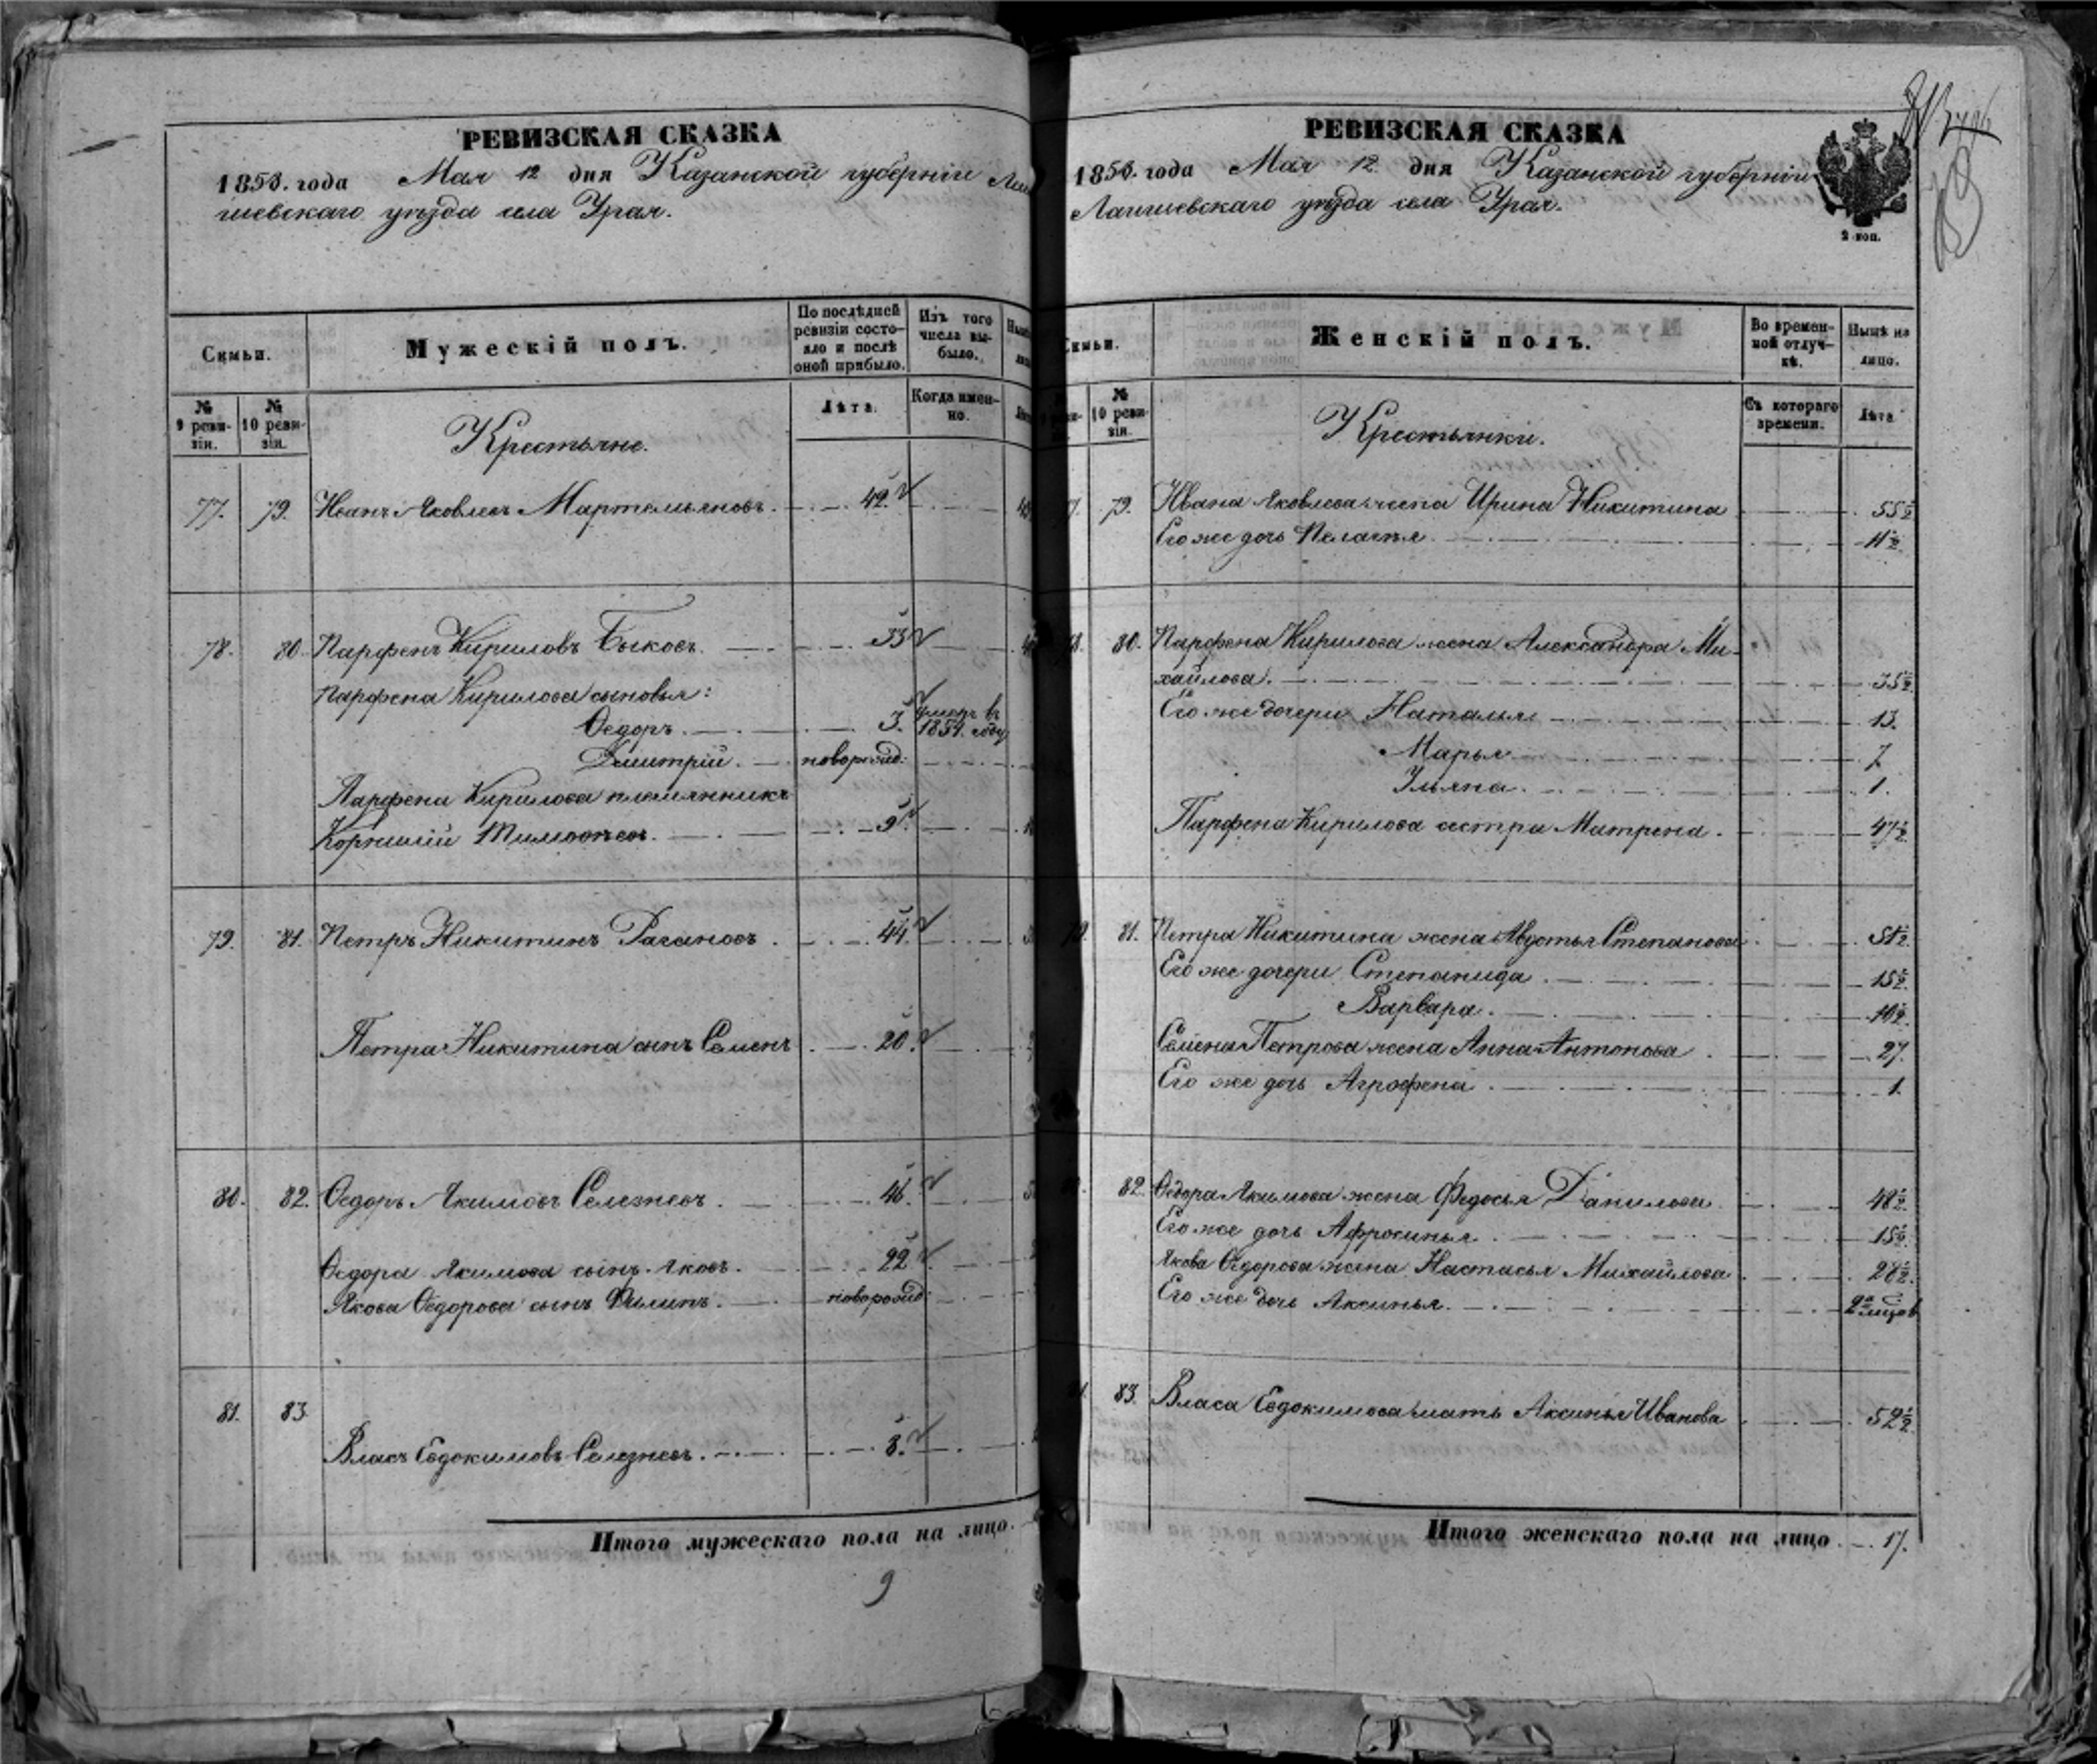 РЕВИЗСКАЯ СКАЗКА
1858. года Мая 12 дня Казанской губерніи Лаи
шевскаго уѣзда села Урая.
Семьи.
Мужескій полъ.
По послѣдней ревизіи состо-
яло и послѣ
оной прибыло.
Изъ того
числа вы-
было.
№
9 реви-
зіи.
№
10 реви-
зіи.
Крестьяне.
Лѣта.
Когда имен-
но.
77. 79. Иванъ Яковлевъ Мартемьяновъ. 42.
78. 80. Парфенъ Кириловъ Быковъ. 33
Парфена Кирилова сыновья:
Ѳедоръ. 3. умеръ въ
1854. году
Дмитрій. новорожд:
Парфена Кирилова племянникъ
Корнилій Тимоѳеевъ. 9.
79. 81. Петръ Никитинъ Рагановъ. 44.
Петра Никитина сынъ Семенъ 20.
80. 82. Ѳедоръ Якимовъ Селезневъ. 46.
Ѳедора Якимова сынъ Яковъ. 22.
Якова Ѳедорова сынъ Филипъ. новорожд:
81. 83. Власъ Евдокимовъ Селезневъ. 8.
Итого мужескаго пола на лицо.
9
РЕВИЗСКАЯ СКАЗКА
1858. года Мая 12 дня Казанской губерніи
Лаишевскаго уѣзда села Урая.
2 коп.
Женскій полъ.
Во времен-
ной отлуч-
кѣ.
Нынѣ на
лицо.
№
10 реви-
зіи.
Крестьянки.
Съ котораго
времени.
Лѣта
79. Ивана Яковлева жена Ирина Никитина 55 1/2
Его же дочь Пелагея 11 1/2
80. Парфена Кирилова жена Александра Ми-
хайлова. 35 1/2
Его же дочери Наталья 13.
Марья 7
Ульяна. 1.
Парфена Кирилова сестра Матрена. 47 1/2
81. Петра Никитина жена Авдотья Степанова 51 1/2
Его же дочери Степанида 15 1/2
Варвара. 10 1/2
Семена Петрова жена Анна Антонова 27.
Его же дочь Агрофена 1.
82. Ѳедора Якимова жена Федосья Данилова 48 1/2
Его же дочь Афросинья 15 1/2
Якова Ѳедорова жена Настасья Михайлова 28 1/2
Его же дочь Аксинья.
83. Власа Евдокимова мать Аксинья Иванова 52 1/2
Итого женскаго пола на лицо 17.